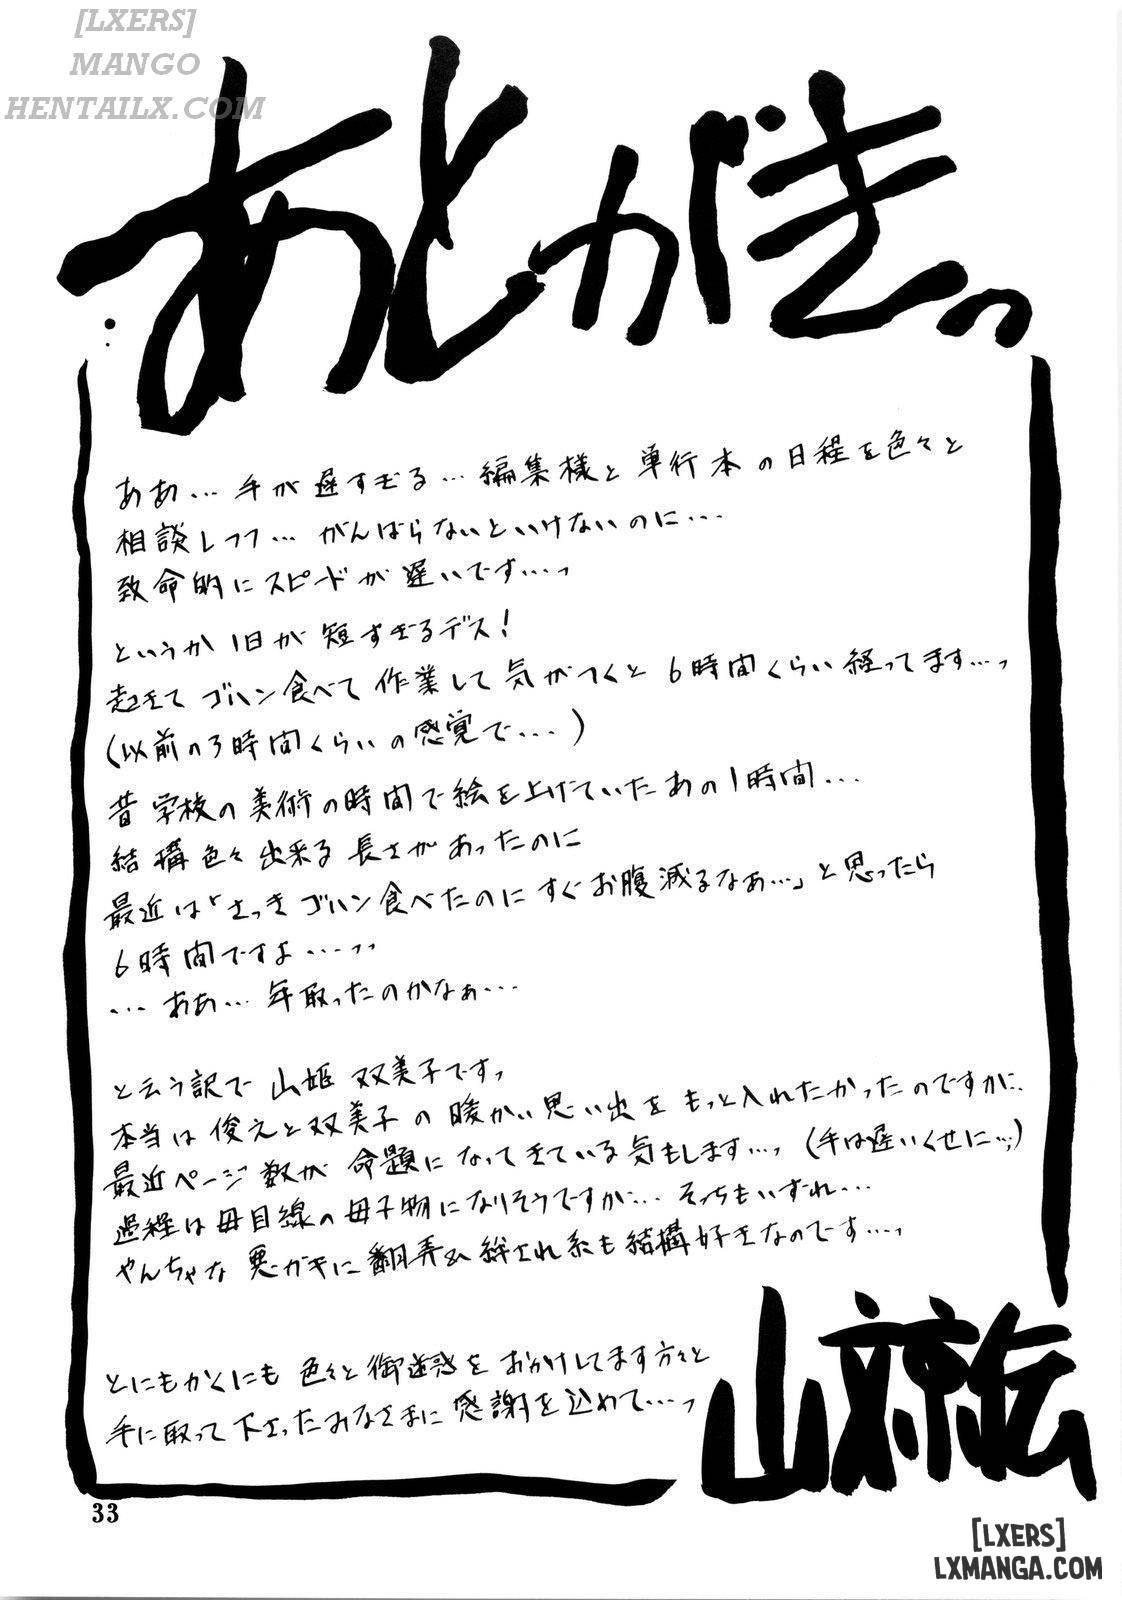 [LXERS]
MANGO
HENTAILX.COM
あとがきっ
ああ…手が遅すぎる…編集様と単行本の日程を色々と
相談しつつ…がんばらないといけないのに…
致命的にスピードが遅いです…っ
というか1日が短すぎるデス!
起きてゴハン食べて作業して気がつくと6時間くらい経ってます…っ
(以前の3時間くらいの感覚で…)
昔学校の美術の時間で絵を上げていたあの1時間…
結構色々出来る長さがあったのに
最近は「さっきゴハン食べたのにすぐお腹減るなぁ…」と思ったら
6時間ですよ…っっ
…ああ…年取ったのかなぁ…
と云う訳で山姫双美子ですっ
本当は俊之と双美子の暖かい思い出をもっと入れたかったのですがに
最近ページ数が命題になってきている気もします…っ(手は遅いくせに…)
過程は母目線の母子物になりそうですが…そっちもいずれ…
やんちゃな悪ガキに翻弄&絆され系も結構好きなのです…っ
とにもかくにも色々と御迷惑をおかけしてます方々と
手に取って下さったみなさまに感謝を込めて…っ
山文京伝
33
[LXERS]
LXMANGA.COM